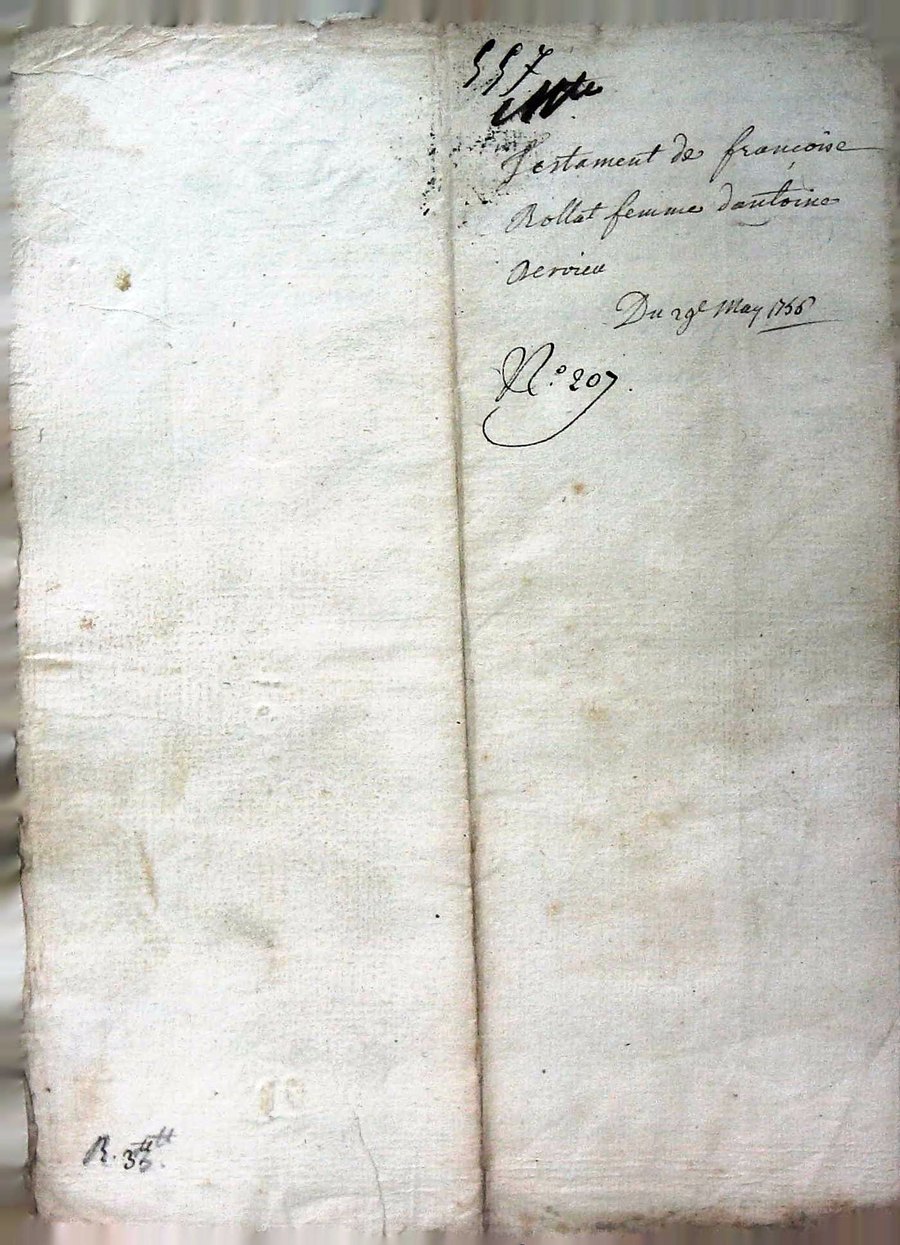 557
Testament de françoise
Rollat femme dantoine
Du 29e May 1766
N.o 207.
R. 3